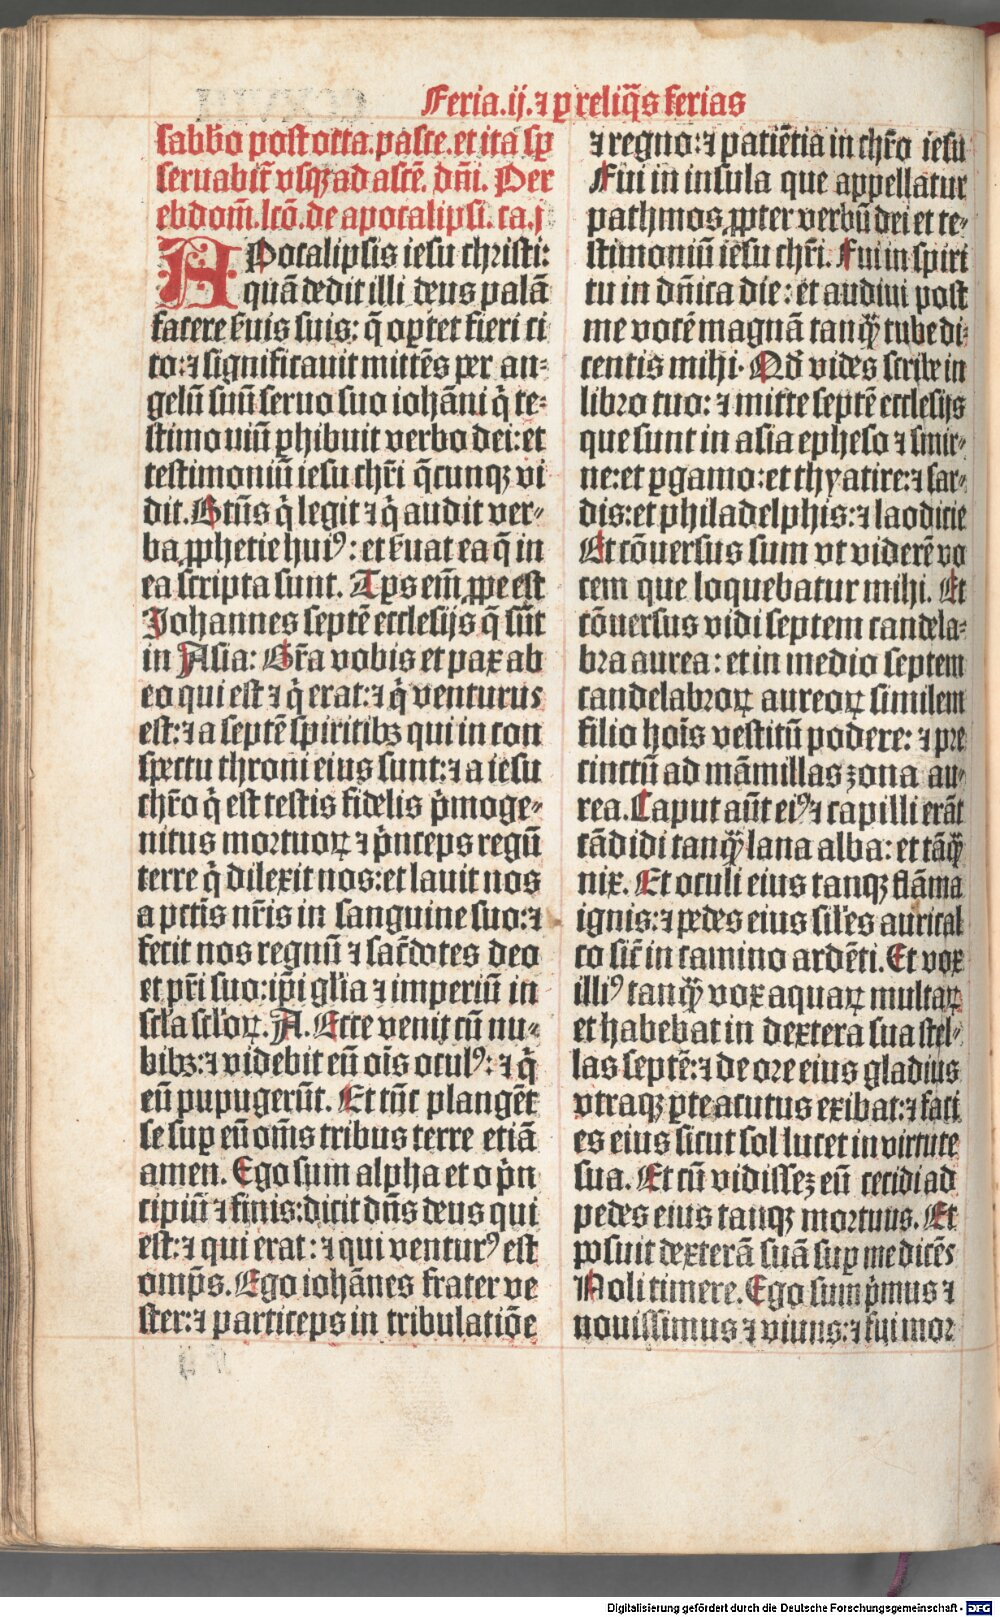 Feria.ij. ⁊ p̲ reliq̃s ferias
sabb̃o post octa.pasce.et ita sp̱
seruabit̃ vsqꝫ ad ascẽ. dñi. Per
ebdom̃. lcõ. de apocalipsi. ca.j
APocalipsis iesu christi:
quã dedit illi deus palã
facere ẜuis suis: q̃ oꝑtet fieri ci
to: ⁊ significauit mittẽs per an⸗
gelũ suũ seruo suo iohãni q̇ te⸗
stimoniũ ꝑhibuit verbo dei: et
testimoniũ iesu chr̃i q̃cunqꝫ vi
dit. Btũs q̇ legit ⁊ q̇ audit ver⸗
ba ꝓphetie huiꝰ: et ẜuat ea q̃ in
ea scripta sunt. Tp̃s em̃ ꝓpe est
Johannes septẽ ecclesijs q̃ sũt
in Asia: Gr̃a vobis et pax ab
eo qui est ⁊ q̇ erat: ⁊ q̇ venturus
est: ⁊ a septẽ spiritibꝫ qui in con
spectu throni eius sunt: ⁊ a iesu
chr̃o q̇ est testis fidelis p̓moge⸗
nitus mortuoꝝ ⁊ p̓nceps regũ
terre q̇ dilexit nos: et lauit nos
a pctĩs nr̃is in sanguine suo: ⁊
fecit nos regnũ ⁊ sac̃dotes deo
et pr̃i suo: ip̃i gl̃ia ⁊ imperiũ in
scl̃a scl̃oꝝ. A. Ecce venit cũ nu⸗
bibꝫ: ⁊ videbit eũ oĩs oculꝰ: ⁊ q̇
eũ pupugerũt. Et tũc plangẽt
se suꝑ eũ om̃s tribus terre etiã
amen. Ego sum alpha et o p̓n
cipiũ ⁊ finis: dicit dñs deus qui
est: ⁊ qui erat: ⁊ qui venturꝰ est
omp̃s. Ego iohãnes frater ve
ster: ⁊ particeps in tribulatiõe
⁊ regno: ⁊ patiẽtia in chr̃o iesu
Fui in insula que appellatur
pathmos ꝓpter verbũ dei et te⸗
stimoniũ iesu chr̃i. Fui in spiri
tu in dñica die: et audiui post
me vocẽ magnã tanqꝫ̃ tube di⸗
centis mihi. Qd̃ vides scribe in
libro tuo: ⁊ mitte septẽ ecclesijs
que sunt in asia epheso ⁊ smir⸗
ne: et ꝑgamo: et thyatire: ⁊ sar⸗
dis: et philadelphis: ⁊ laodicie
Et cõuersus sum vt viderẽ vo
cem que loquebatur mihi. Et
cõuersus vidi septem candela⸗
bra aurea: et in medio septem
candelabroꝝ aureoꝝ similem
filio hoĩs vestitũ podere: ⁊ pre
cinctũ ad mãmillas zona au⸗
rea. Caput aũt eiꝰ ⁊ capilli erãt
cãdidi tanqꝫ̃ lana alba: et tãqꝫ̃
nix. Et oculi eius tanqꝫ flãma
ignis: ⁊ pedes eius sil̃es aurical
co sic̃ in camino ardẽti. Et vox
illiꝰ tanqꝫ̃ vox aquaꝝ multaꝝ
et habebat in dextera sua stel⸗
las septẽ: ⁊ de ore eius gladius
vtraqꝫ ꝑte acutus exibat: ⁊ faci
es eius sicut sol lucet in virtute
sua. Et cũ vidissez eũ cecidi ad
pedes eius tanqꝫ mortuus. Et
posuit dexterã suã suꝑ me dicẽs
Noli timere. Ego sum p̓mus ⁊
nouissimus ⁊ viuus: ⁊ fui mor
Digitalisierung gefördert durch die Deutsche Forschungsgemeinschaft - DFG